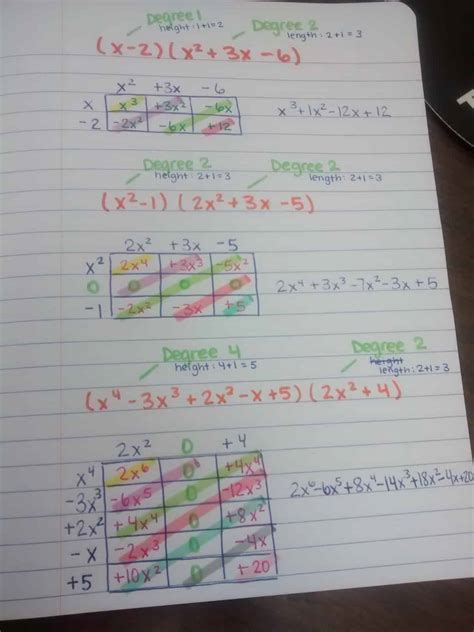 Degree 1 Degree 2
height: 1+1=2 length: 2+1=3
(x-2)(x²+3x-6)
x² +3x -6
x x³ +3x² -6x
-2 -2x² -6x +12
x³+1x²-12x+12
Degree 2 Degree 2
height: 2+1=3 length: 2+1=3
(x²-1)(2x²+3x-5)
2x² +3x -5
x² 2x⁴ +3x³ -5x²
0 0 0 0
-1 -2x² -3x +5
2x⁴+3x³-7x²-3x+5
Degree 4 Degree 2
height: 4+1=5 height
length: 2+1=3
(x⁴-3x³+2x²-x+5)(2x²+4)
2x² 0 +4
x⁴ 2x⁶ 0 +4x⁴
-3x³ -6x⁵ 0 -12x³
+2x² +4x⁴ 0 +8x²
-x -2x³ 0 -4x
+5 +10x² 0 +20
2x⁶-6x⁵+8x⁴-14x³+18x²-4x+20